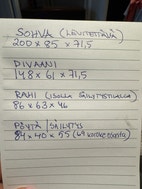 SOHVA (LEVITETTÄVÄ)
200 x 85 x 71,5
DIVAANI
148 x 61 x 71,5
RAHI (ISOLLA SÄILYTYSTILALLA)
86 x 63 x 46
PÖYTÄ / SÄILYTYS
84 x 40 x 55 (69